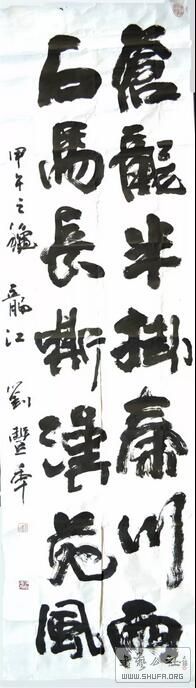 蒼龍半掛秦川雨
石馬長嘶漢苑風
甲午之龝 龍江 劉豐年
WWW.SHUFA.ORG